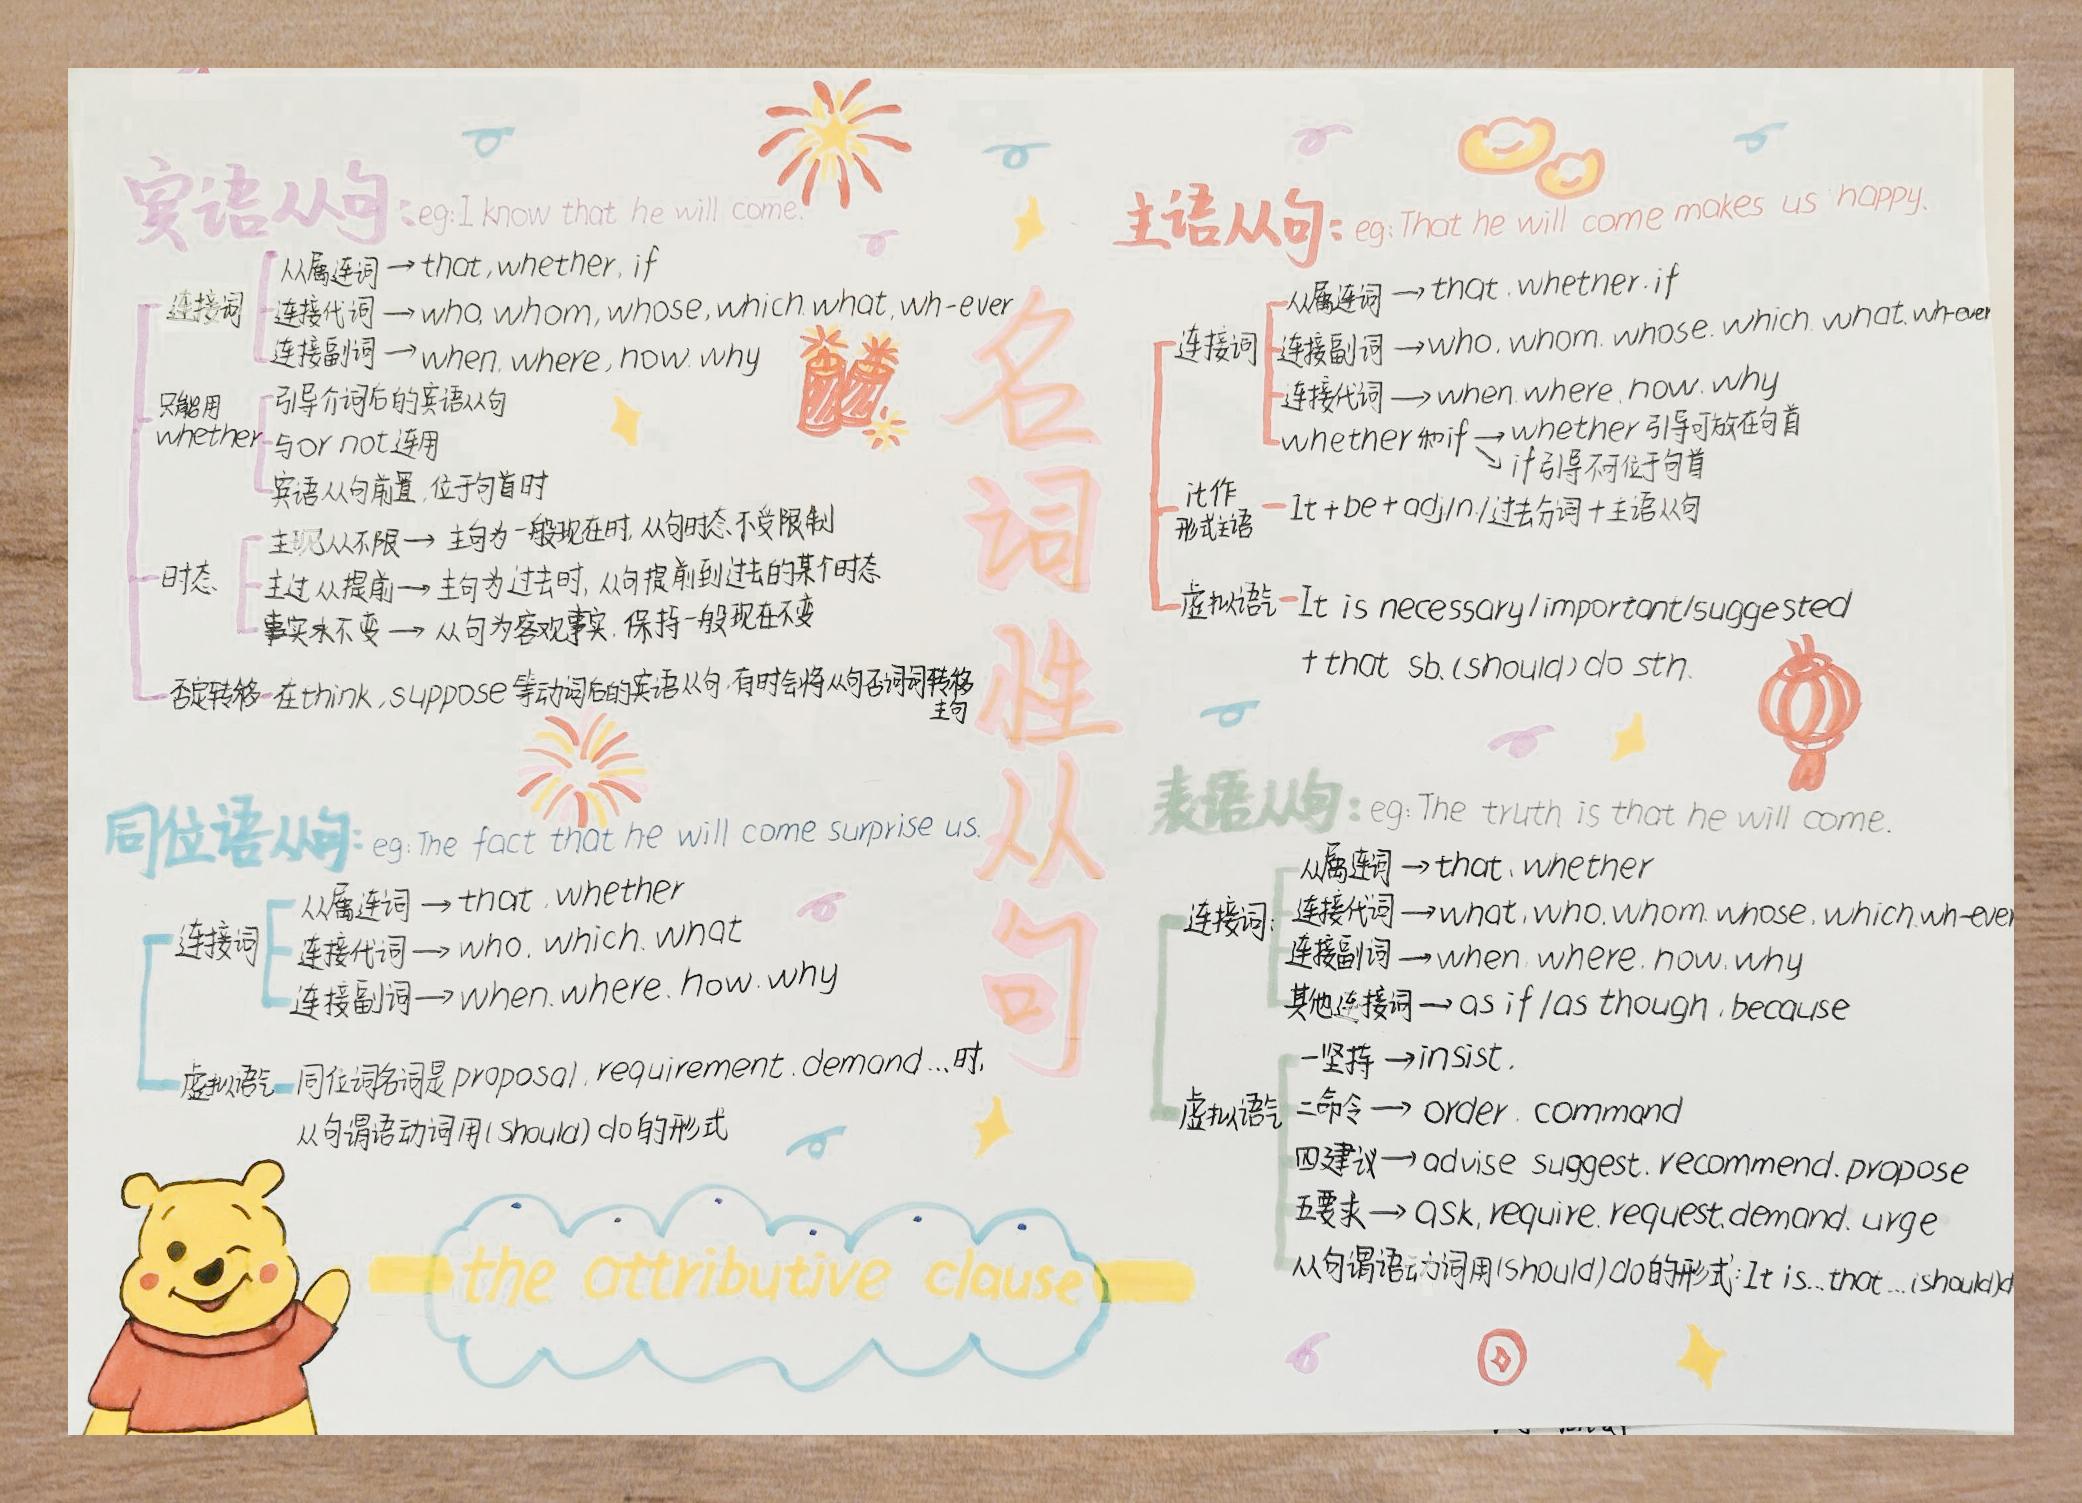 宾语从句:eg:I know that he will come.
连接词
从属连词→that,whether,if
连接代词→who,whom,whose,which.what,wh-ever
连接副词→when.where,how.why
只能用
whether
引导介词后的宾语从句
与or not连用
宾语从句前置,位于句首时
时态
主现从不限→主句为一般现在时,从句时态不受限制
主过从提前→主句为过去时,从句提前到过去的某个时态
事实永不变→从句为客观事实.保持一般现在不变
否定转移-在think,suppose等动词后的宾语从句,有时会将从句否词词转移
主句
名词性从句
主语从句:eg:That he will come makes us happy.
连接词
从属连词→that.whether.if
连接副词→who,whom.whose.which.what.wh-ever
连接代词→when.where.how.why
whether和if→whether引导可放在句首
↘if引导不可位于句首
it作
形式主语
-It+be+adj/n./过去分词+主语从句
虚拟语气-It is necessary/important/suggested
+that sb.(should)do sth.
同位语从句:eg:The fact that he will come surprise us.
连接词
从属连词→that.whether
连接代词→who.which.what
连接副词→when.where.how.why
虚拟语气-同位词名词是proposal.requirement.demand...时,
从句谓语动词用(should)do的形式
表语从句:eg:The truth is that he will come.
连接词:
从属连词→that.whether
连接代词→what,who.whom.whose.which.wh-ever
连接副词→when.where.how.why
其他连接词→as if/as though.because
虚拟语气
一坚持→insist.
二命令→order.command
四建议→advise suggest.recommend.propose
五要求→ask,require.request.demand.urge
从句谓语动词用(should)do的形式:It is...that...(should)d
the attributive clause